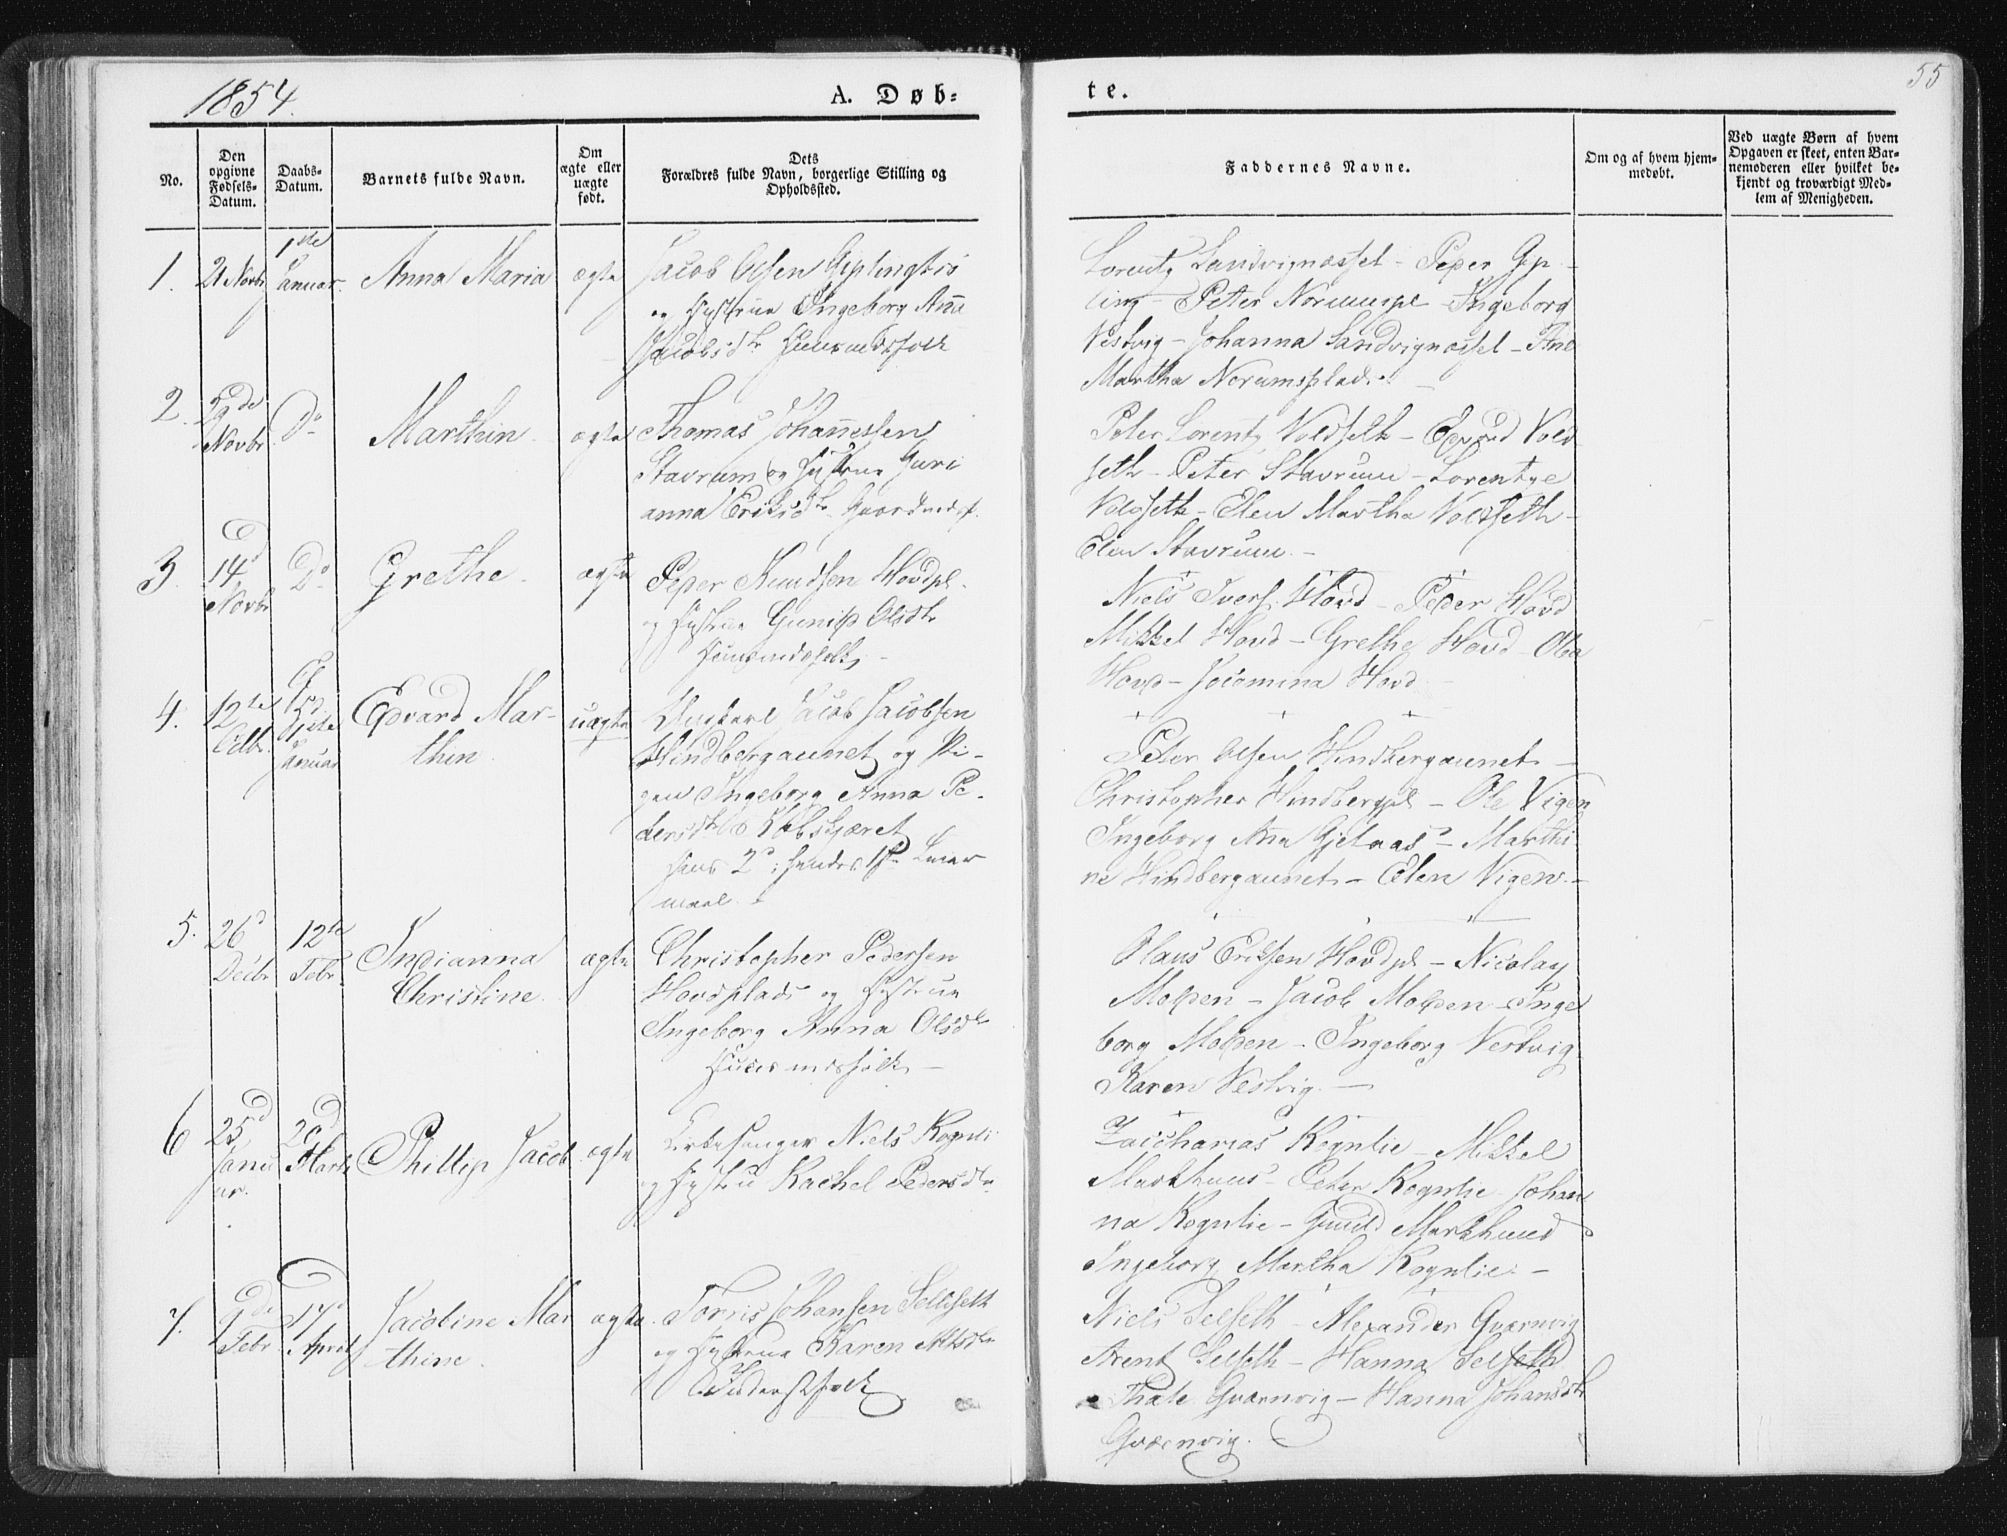 1854.
A. Døb-
te.
55
No.
Den opgivne Fødsels-Datum.
Daabs-Datum.
Barnets fulde Navn.
Om ægte eller uægte født.
Dets Forældres fulde Navn, borgerlige Stilling og Opholdssted.
Faddernes Navne.
Om og af hvem hjem-
medøbt.
Ved uægte Børn af hvem
Opgaven er skeet, enten Bar-
nemoderen eller hvilket be-
kjendt og troværdigt Med-
lem af Menigheden.
1.
21 Novbr
1ste
Januar.
Anna Maria
ægte
Jacob Olsen
og Hustrue Ingeborg Anna
Jacobsdtr Huusmandsfolk
Lorentz Sandvignæsset - Peder Gip-
ling - Peter Norumspl - Ingeborg
Vestvig - Johanna Sandvignæsset - Ane
Martha Norumsplads.
2.
Novbr
Do
Marthin
ægte
Thomas Johannessen
Stavrum og Hustrue Guri
anna Eriksdtr Gaardmandsf.
Peter Lorentz Voldseth - Edvard Vold
seth - Peter Stavrum - Lorentze
Voldseth - Elen Martha Voldseth -
Elen Stavrum. -
3.
14d
Novbr
Do
Grethe.
ægte
Peder Knudsen Hovdpl.
og Hustrue Gunild Olsdtr
Huusmandsfolk. -
Niels Ivers. Hovd - Peder Hovd
Mikkel Hovd - Grethe Hovd - Olea
Hovd - Jocomina Hovd -
4.
12te
Januar
Edvard Mar-
thin
uægte
Ungkarl Jacob Jacobsen
Hindbergaunet og Pi-
gen Ingeborg Anna Pe-
dersdtr
hans 2d, hendes 1ste Leier
maal.
Peter Olsen Hindbergaunet -
Christopher Hindbergpl - Ole Vigen
Ingeborg Ana Gjetaas - Marthi
ne Hindbergaunet - Elen Vigen. -
5.
26d
Decbr
12te
Febr.
Indianna
Christine.
ægte
Christopher Pedersen
Hovdplads og Hustrue
Ingeborg Anna Olsdtr
Huusmdsfolk -
Olaus Eriksen Hovdpl - Nicolay
Molden - Jacob Molden - Inge
borg Molden - Ingeborg Vestvig
Karen Vestvig. -
6
25d
Janu
ar.
20d
Marts
Phillip Jacob
ægte
Kirkesanger Niels Rognli
og Hustru Rachel Pedersdtr.
Zaccharias Rognlie - Mikkel
Markhuus - Peter Rognlie - Johan
na Rognlie - Gunild Markhuus
Ingeborg Martha Rognlie. -
7.
Febr
17d
April
Jacobine Mar
thine.
ægte
Torris Johansen Selliseth
og Hustrue Karen
Niels Selseth - Alexander Qværnvig
Arent Selseth - Hanna Selseth
Thale Qværnvig - Hanna Johansdtr
Qværnvig.